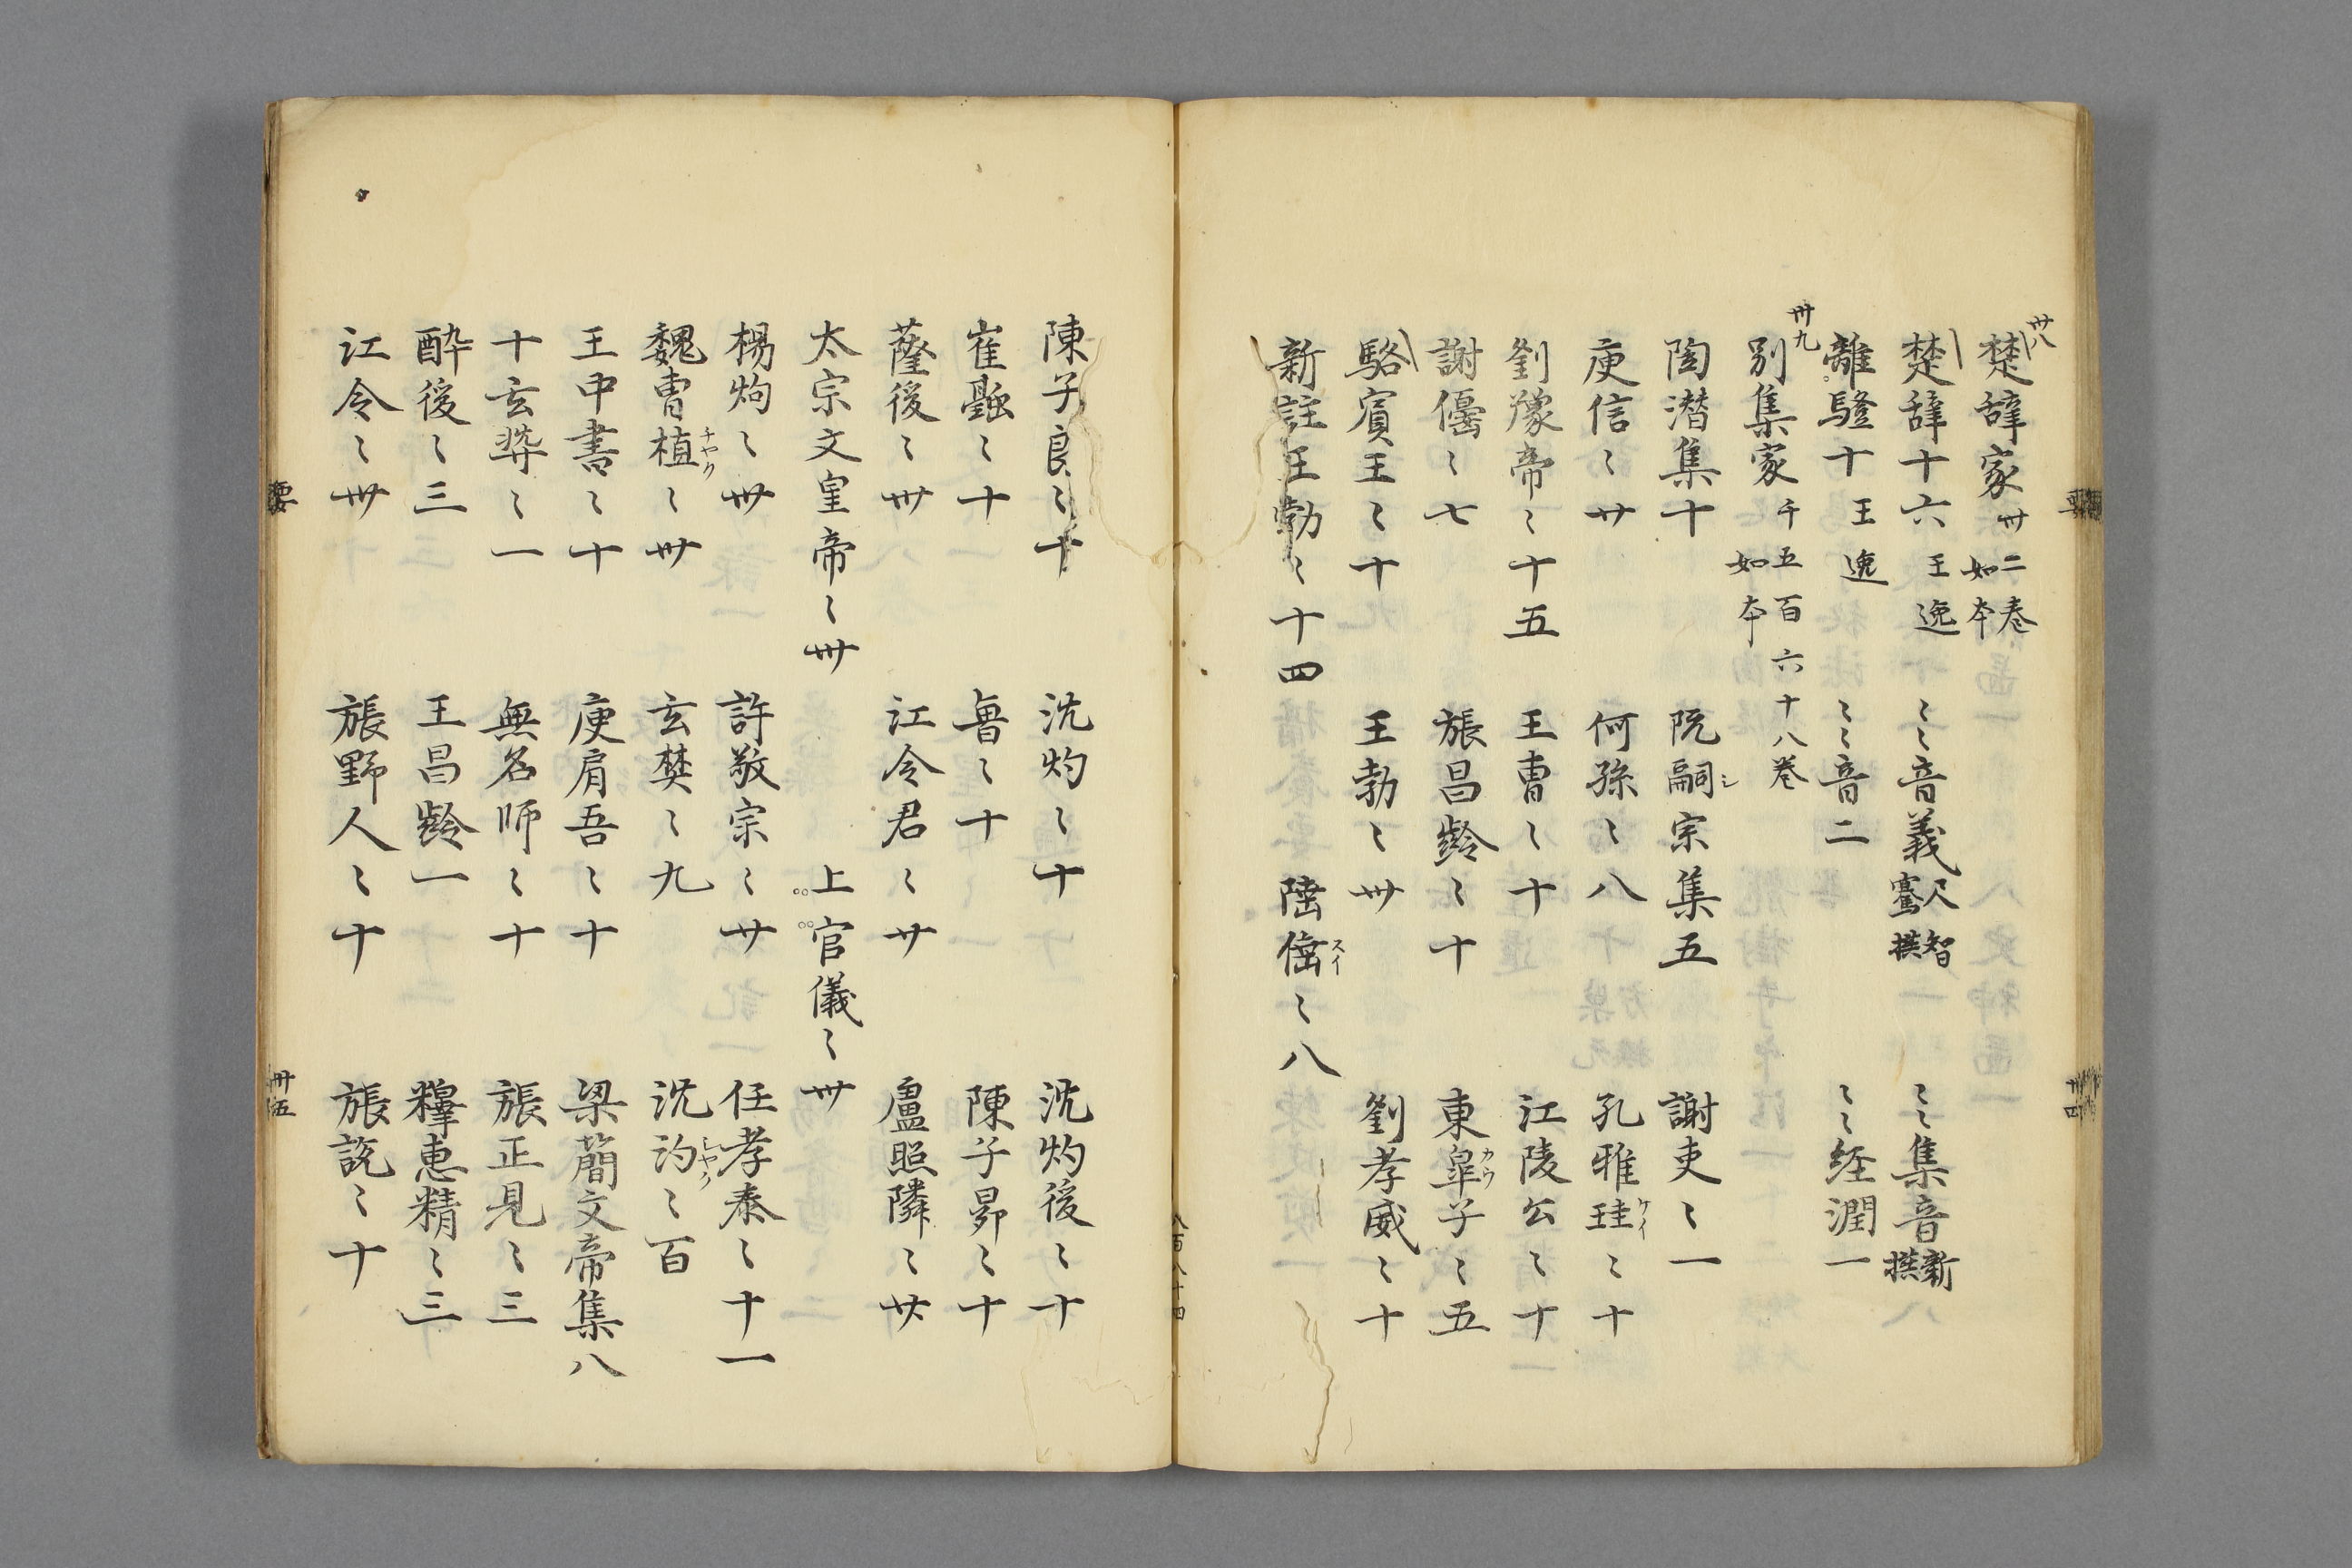 卅八
楚辞家 卅二巻 如本
楚辞十六 王逸 〻〻音義 尺智騫撰 〻〻集音 新撰
離騒十 王逸 〻〻音二 〻〻経潤一
卅九
別集家 千五百六十八巻 如本
陶潜集十 阮嗣宗集五 謝吏〻一
シ
庾信〻廿 何孫〻八 孔雅珪〻十
ケイ
劉豫帝〻十五 王曹〻十 江陵公〻十
謝偓〻七 張昌齢〻十 東皐子〻五
カウ
駱賓王〻十 王勃〻卅 劉孝威〻十
新註王勃〻十四 陸倕〻八
スイ
八百八十四
陳子良〻十 沈灼〻十 沈灼後〻十
崔融〻十 魯〻十 陳子昴〻十
薩後〻卅 江令君〻廿 盧照隣〻廿
太宗文皇帝〻卅 上官儀〻卅
楊炯〻卅 許敬宗〻廿 任孝泰〻十一
魏曹植〻卅 玄奘〻九 沈約〻百
チヤク
シヤク
王中書〻十 庾肩吾〻十 梁簡文帝集八
十玄弉〻一 無名師〻十 張正見〻三
酔後〻三 王昌齢一 釋恵精〻三
江令〻卅 張野人〻十 張説〻十
卅五